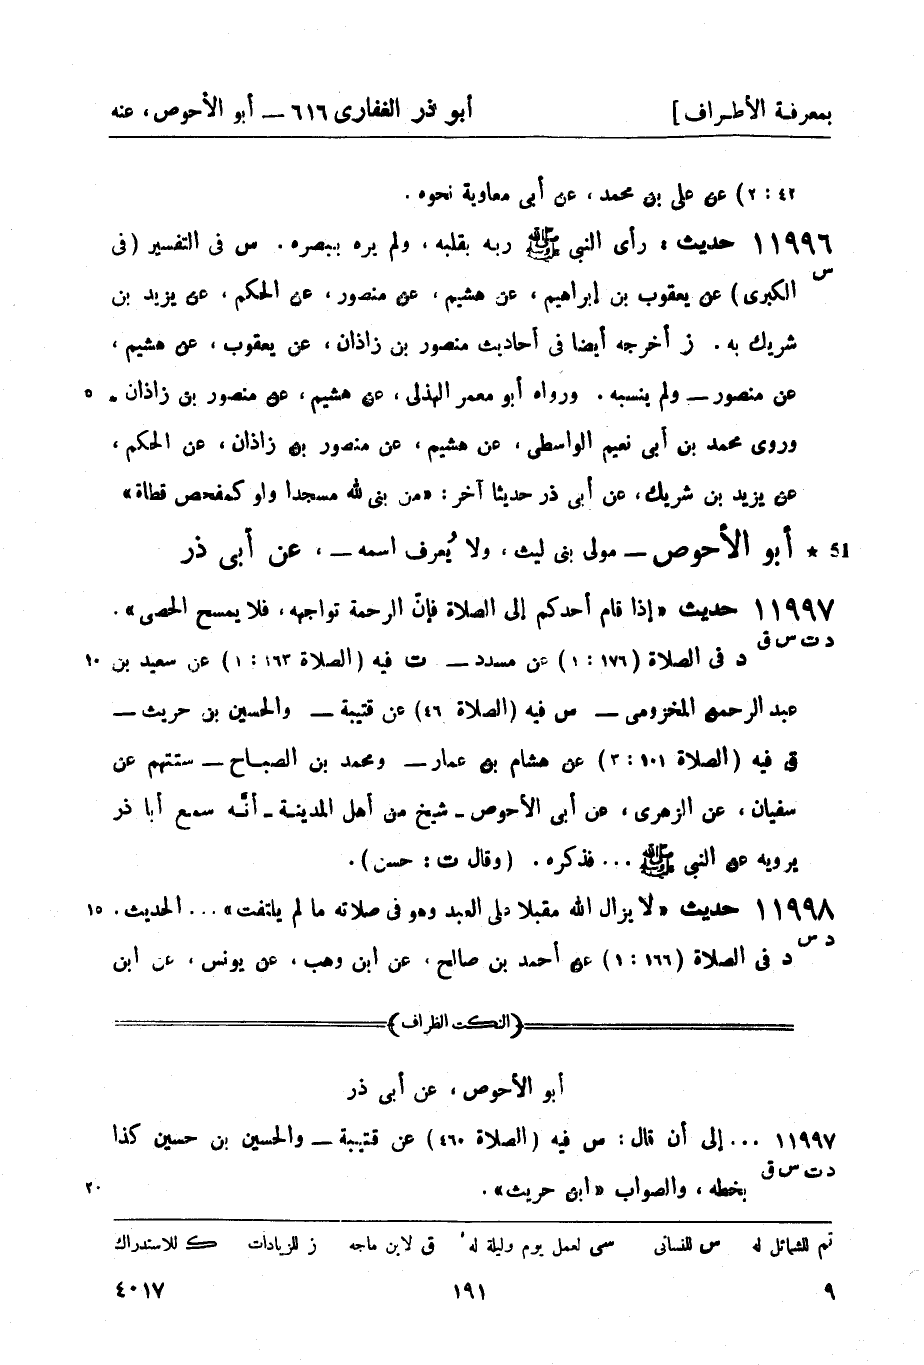 بمعرفة الأطراف] أبو ذر الغفارى ٦١٦ — أبو الأحوص، عنه
٢ : ٤٢) عن على بن محمد، عن أبى معاوية نحوه.
١١٩٩٦ حديث: رأى النبى ﷺ ربه بقلبه، ولم يره ببصره. س فى التفسير (فى
س
الكبرى) عن يعقوب بن إبراهيم، عن هشيم، عن منصور، عن الحكم، عن يزيد بن
شريك به. ز أخرجه أيضا فى أحاديث منصور بن زاذان، عن يعقوب، عن هشيم،
عن منصور — ولم ينسبه. ورواه أبو معمر الهذلى، عن هشيم، عن منصور بن زاذان. ٥
وروى محمد بن أبى نعيم الواسطى، عن هشيم، عن منصور بن زاذان، عن الحكم،
عن يزيد بن شريك، عن أبى ذر حديثا آخر: «من بنى لله مسجدا ولو كمفحص قطاة»
51 * أبو الأحوص — مولى بنى ليث، ولا يُعرف اسمه —، عن أبى ذر
١١٩٩٧ حديث «إذا قام أحدكم إلى الصلاة فإنّ الرحمة تواجهه، فلا يمسح الحصى».
د ت س ق
د فى الصلاة (١٧٦ : ١) عن مسدد — ت فيه (الصلاة ١٦٣ : ١) عن سعيد بن ١٠
عبد الرحمن المخزومى — س فيه (الصلاة ٤٦) عن قتيبة — والحسين بن حريث —
ق فيه (الصلاة ١٠١ : ٣) عن هشام بن عمار — ومحمد بن الصباح — ستتهم عن
سفيان، عن الزهرى، عن أبى الأحوص — شيخ من أهل المدينة — أنّه سمع أبا ذر
يرويه عن النبى ﷺ ... فذكره. (وقال ت: حسن).
١١٩٩٨ حديث «لا يزال الله مقبلا على العبد وهو فى صلاته ما لم يلتفت» ... الحديث. ١٥
د س
د فى الصلاة (١٦٦ : ١) عن أحمد بن صالح، عن ابن وهب، عن يونس، عن ابن
(النكت الظراف)
أبو الأحوص، عن أبى ذر
١١٩٩٧ ... إلى أن قال: س فيه (الصلاة ٤٦٠) عن قتيبة — والحسين بن حسين كذا
د ت س ق
بخطه، والصواب «ابن حريث». ٢٠
تم للشمائل له س للنسائى سى لعمل يوم وليلة له ق لابن ماجه ز للزيادات ك للاستدراك
٩ ١٩١ ٤٠١٧